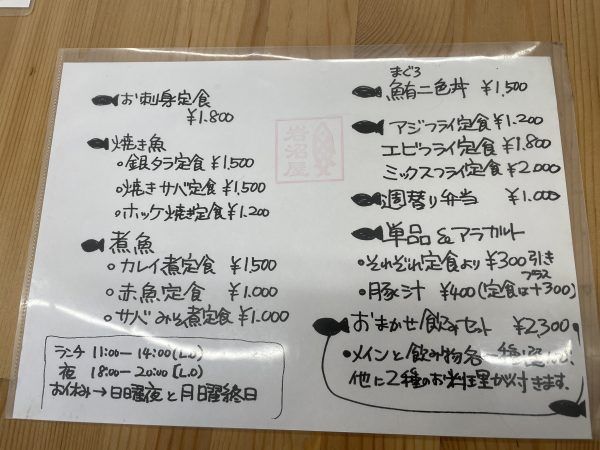 お刺身定食
¥1.800
焼き魚
・銀タラ定食 ¥1,500
・焼きサバ定食 ¥1,500
・ホッケ焼き定食 ¥1.200
煮魚
・カレイ煮定食 ¥1,500
・赤魚定食 ¥1.000
・サバみそ煮定食 ¥1.000
ランチ 11:00-14:00(L.O)
夜 18:00-20:00(L.O)
お休み→日曜夜と月曜終日
岩沼屋
まぐろ
鮪二色丼 ¥1,500
アジフライ定食 ¥1.200
エビフライ定食 ¥1.800
ミックスフライ定食 ¥2.000
週替り弁当 ¥1.000
単品&アラカルト
・それぞれ定食より ¥300引き
プラス
・豚汁 ¥400(定食は+300)
おまかせ飲みセット ¥2,300
・メインと飲み物各一種選
他に2種のお料理が付きます.